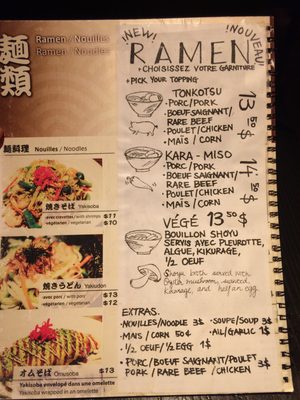 麺類
Ramen / Nouilles
Ramen / Noodles
麺料理 Nouilles / Noodles
焼きそば Yakisoba
avec crevettes / with shrimps $11
végétarien / vegetarian $10
焼きうどん Yakiudon
avec porc / with pork $13
végétarien / vegetarian $12
オムそば Omusoba $13
Yakisoba enveloppé dans une omelette
Yakisoba wrapped in an omelette
NEW! ¡NOUVEAU!
RAMEN
+ CHOISISSEZ VOTRE GARNITURE
+ PICK YOUR TOPPING
TONKOTSU 13 50 $
- PORC/PORK
- BOEUF SAIGNANT/
RARE BEEF
- POULET/CHICKEN
- MAÏS/CORN
KARA-MISO 14 50 $
- PORC/PORK
- BOEUF SAIGNANT/
RARE BEEF
- POULET/CHICKEN
- MAÏS/CORN
VÉGÉ 13 50 $
BOUILLON SHOYU
SERVIS AVEC PLEUROTTE,
ALGUE, KIKURAGE,
1/2 OEUF
Shoyu broth served with
oyster mushroom, seaweed,
kikurage, and half an egg.
EXTRAS.
- NOUILLES/NOODLE 3$ - SOUPE/SOUP 3$
- MAIS/CORN 50¢ - AIL/GARLIC 1$
- 1/2 OEUF/ 1/2 EGG 1$
- PORC/BOEUF SAIGNANT/POULET
PORK/RARE BEEF/CHICKEN 3$